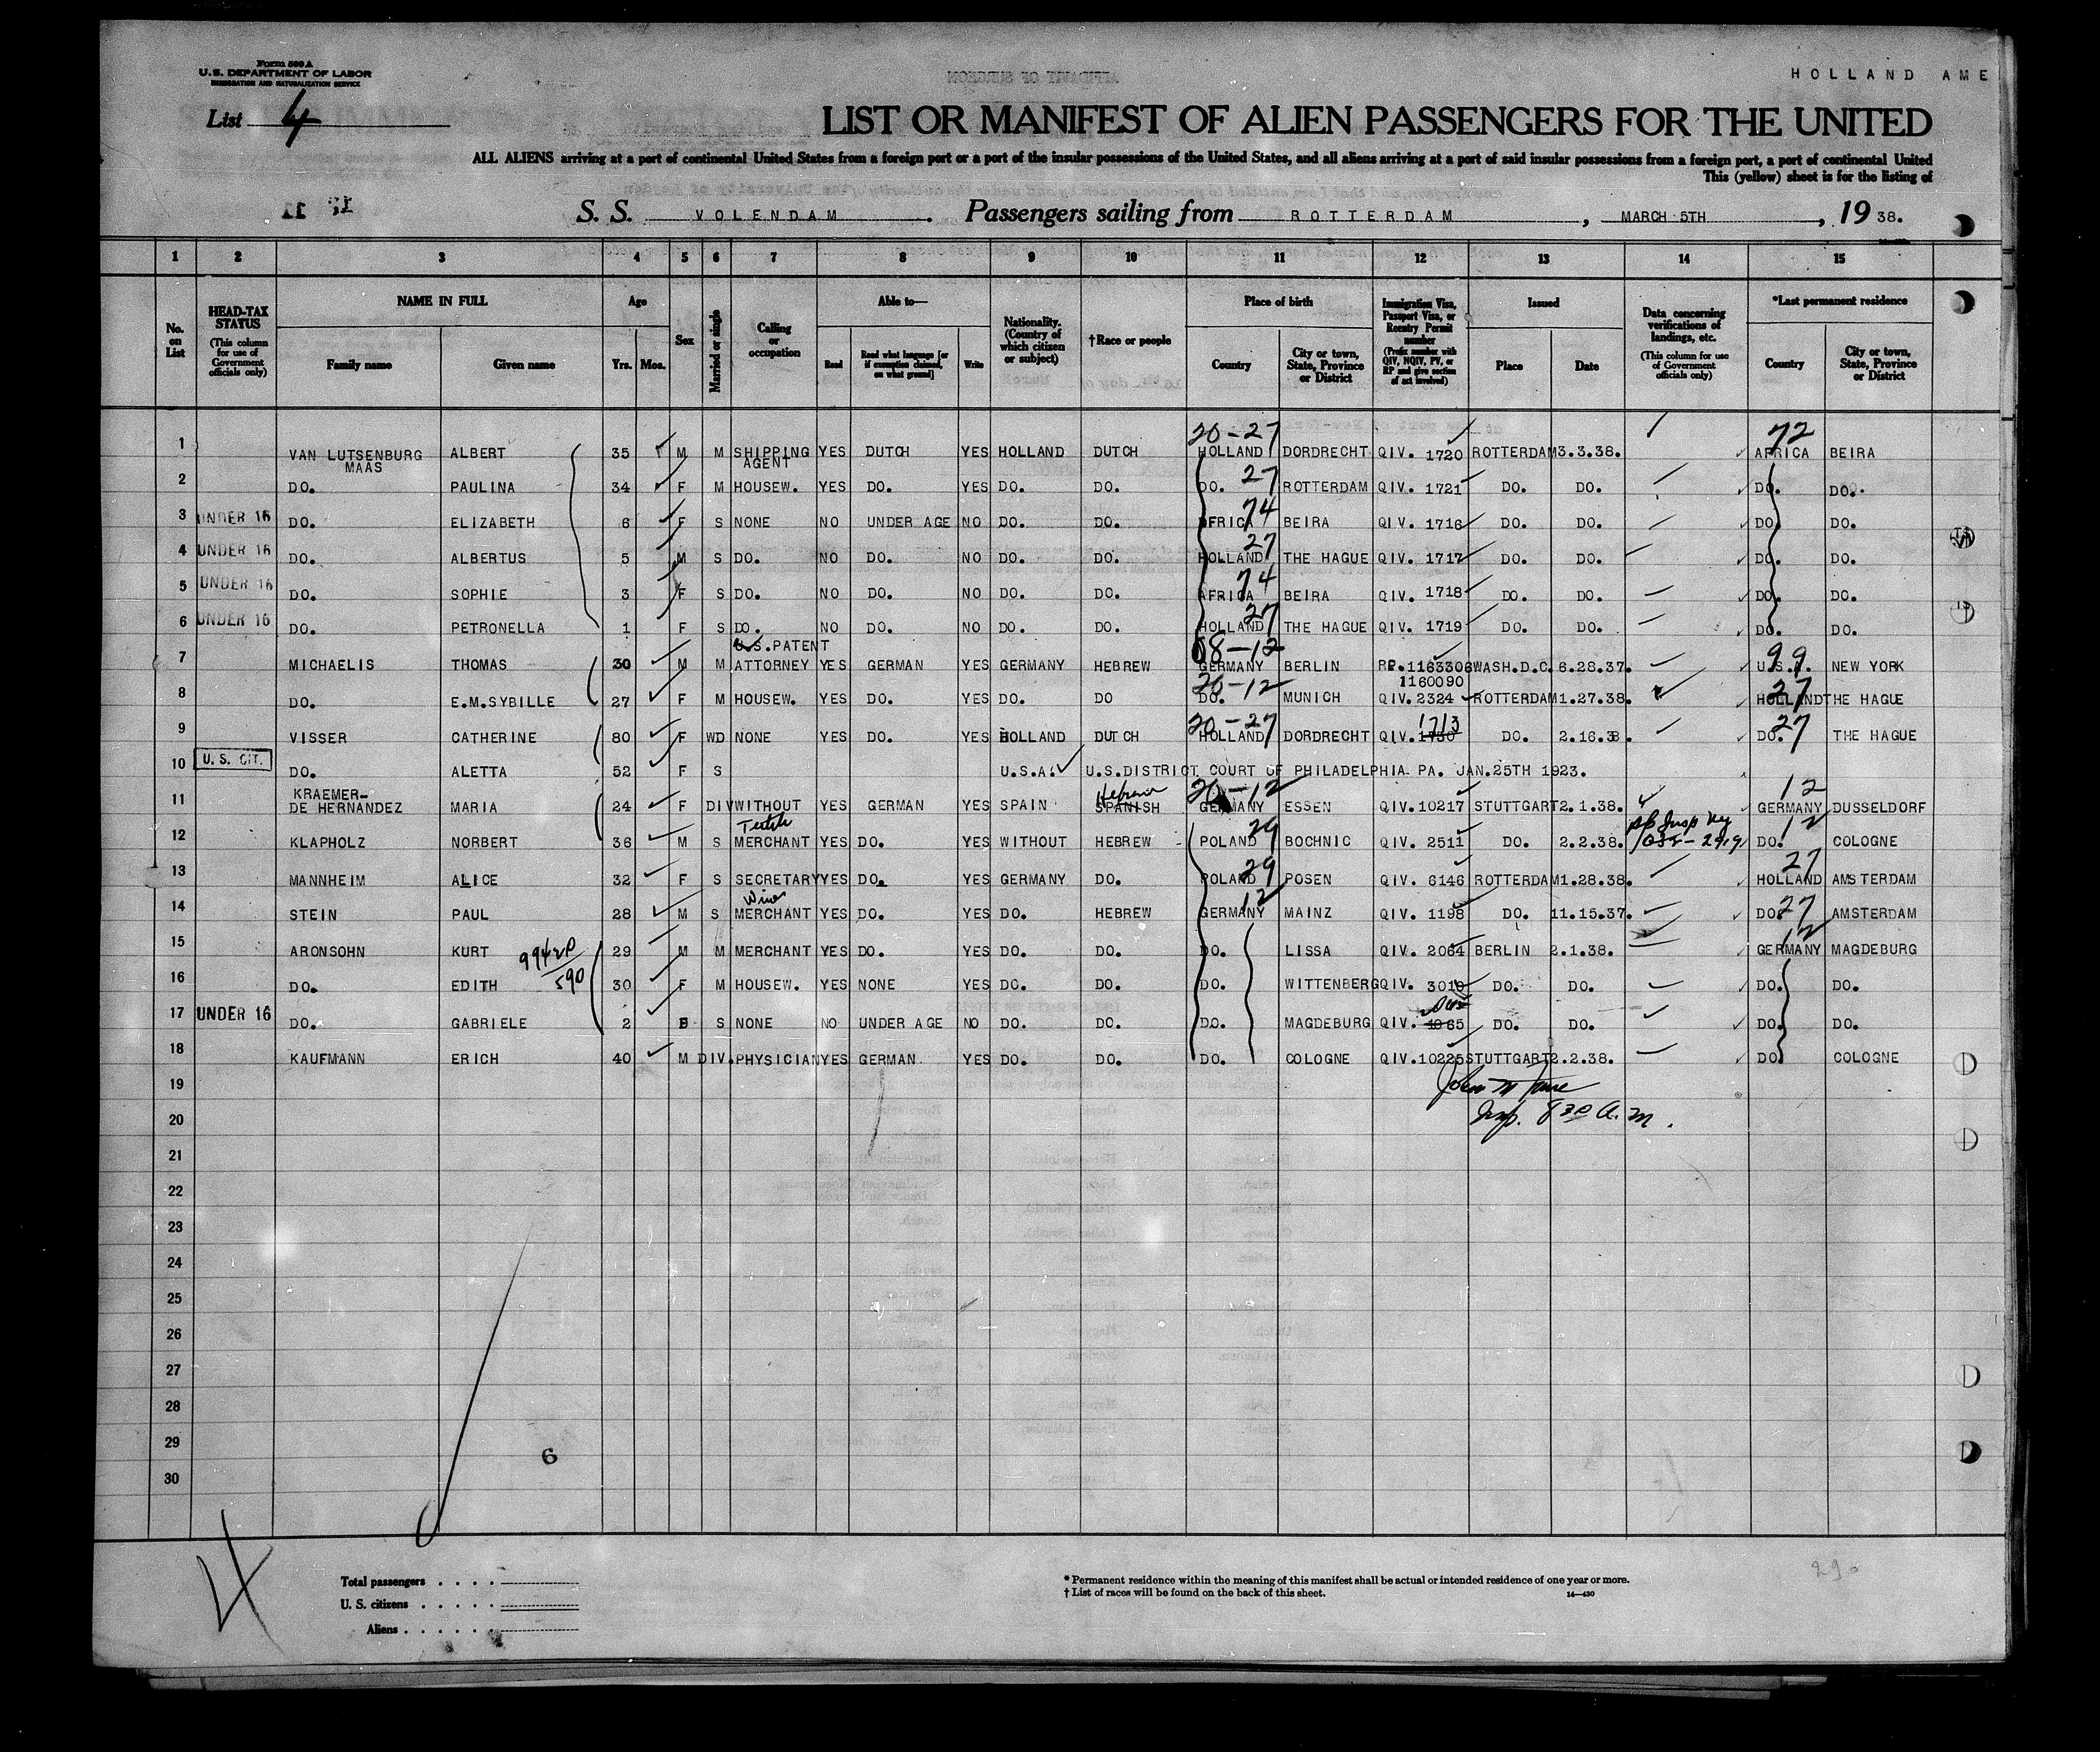 Form 500 A
U. S. DEPARTMENT OF LABOR
IMMIGRATION AND NATURALIZATION SERVICE
HOLLAND AME
List 4
LIST OR MANIFEST OF ALIEN PASSENGERS FOR THE UNITED
ALL ALIENS arriving at a port of continental United States from a foreign port or a port of the insular possessions of the United States, and all aliens arriving at a port of said insular possessions from a foreign port, a port of continental United
This (yellow) sheet is for the listing of
S. S. VOLENDAM . Passengers sailing from ROTTERDAM , MARCH 5TH , 19 38.
1 2 3 4 5 6 7 8 9 10 11 12 13 14 15
No. on List
HEAD-TAX STATUS (This column for use of Government officials only)
NAME IN FULL Family name Given name
Age Yrs. Mos.
Sex
Married or single
Calling or occupation
Able to— Read Read what language [or if exemption claimed, on what ground] Write
Nationality. (Country of which citizen or subject)
†Race or people
Place of birth Country City or town, State, Province or District
Immigration Visa, Passport Visa, or Reentry Permit number (Prefix number with QIV, NQIV, PV, or RP and give section of act involved)
Issued Place Date
Data concerning verifications of landings, etc. (This column for use of Government officials only)
*Last permanent residence Country City or town, State, Province or District
20-27 72
1 VAN LUTSENBURG MAAS ALBERT 35 M M SHIPPING AGENT YES DUTCH YES HOLLAND DUTCH HOLLAND DORDRECHT QIV. 1720 ROTTERDAM 3.3.38. AFRICA BEIRA
2 DO. PAULINA 34 F M HOUSEW. YES DO. YES DO. DO. DO. 27 ROTTERDAM QIV. 1721 DO. DO. DO. DO.
3 UNDER 16 DO. ELIZABETH 6 F S NONE NO UNDER AGE NO DO. DO. AFRICA 74 BEIRA QIV. 1716 DO. DO. DO. DO.
4 UNDER 16 DO. ALBERTUS 5 M S DO. NO DO. NO DO. DO. HOLLAND 27 THE HAGUE QIV. 1717 DO. DO. DO. DO.
5 UNDER 16 DO. SOPHIE 3 F S DO. NO DO. NO DO. DO. AFRICA 74 BEIRA QIV. 1718 DO. DO. DO. DO.
6 UNDER 16 DO. PETRONELLA 1 F S DO. NO DO. NO DO. DO. HOLLAND 27 THE HAGUE QIV. 1719 DO. DO. DO. DO.
7 MICHAELIS THOMAS 30 M M U.S.PATENT ATTORNEY YES GERMAN YES GERMANY HEBREW GERMANY 08-12 BERLIN RP.1163306 WASH.D.C. 6.28.37. U.S.A. 99 NEW YORK
1160090
8 DO. E.M.SYBILLE 27 F M HOUSEW. YES DO. YES DO. DO DO. 20-12 MUNICH QIV.2324 ROTTERDAM 1.27.38. HOLLAND 27 THE HAGUE
9 VISSER CATHERINE 80 F WD NONE YES DO. YES HOLLAND DUTCH HOLLAND 20-27 DORDRECHT QIV.1730 1713 DO. 2.16.38. DO. 27 THE HAGUE
10 U. S. CIT. DO. ALETTA 52 F S U.S.A. U.S.DISTRICT COURT OF PHILADELPHIA PA. JAN.25TH 1923.
11 KRAEMER-DE HERNANDEZ MARIA 24 F DIV WITHOUT YES GERMAN YES SPAIN SPANISH Hebrew GERMANY 20-12 ESSEN QIV.10217 STUTTGART 2.1.38. GERMANY 12 DUSSELDORF
12 KLAPHOLZ NORBERT 36 M S Textile MERCHANT YES DO. YES WITHOUT HEBREW POLAND 29 BOCHNIC QIV. 2511 DO. 2.2.38. DO. 12 COLOGNE
13 MANNHEIM ALICE 32 F S SECRETARY YES DO. YES GERMANY DO. POLAND 29 POSEN QIV. 6146 ROTTERDAM 1.28.38. HOLLAND 27 AMSTERDAM
14 STEIN PAUL 28 M S Wine MERCHANT YES DO. YES DO. HEBREW GERMANY 12 MAINZ QIV. 1198 DO. 11.15.37. DO. 27 AMSTERDAM
15 ARONSOHN KURT 29 M M MERCHANT YES DO. YES DO. DO. DO. LISSA QIV. 2064 BERLIN 2.1.38. GERMANY 12 MAGDEBURG
16 DO. EDITH 590 30 F M HOUSEW. YES NONE YES DO. DO. DO. WITTENBERG QIV. 3010 DO. DO. DO. DO.
17 UNDER 16 DO. GABRIELE 2 F S NONE NO UNDER AGE NO DO. DO. DO. MAGDEBURG QIV. DO. DO. DO. DO.
18 KAUFMANN ERICH 40 M DIV. PHYSICIAN YES GERMAN YES DO. DO. DO. COLOGNE QIV.10225 STUTTGART 2.2.38. DO. COLOGNE
19
Insp. 8 30 A. M.
20
21
22
23
24
25
26
27
28
29
6
30
4
Total passengers
U. S. citizens
Aliens
* Permanent residence within the meaning of this manifest shall be actual or intended residence of one year or more.
† List of races will be found on the back of this sheet.
14—430
29